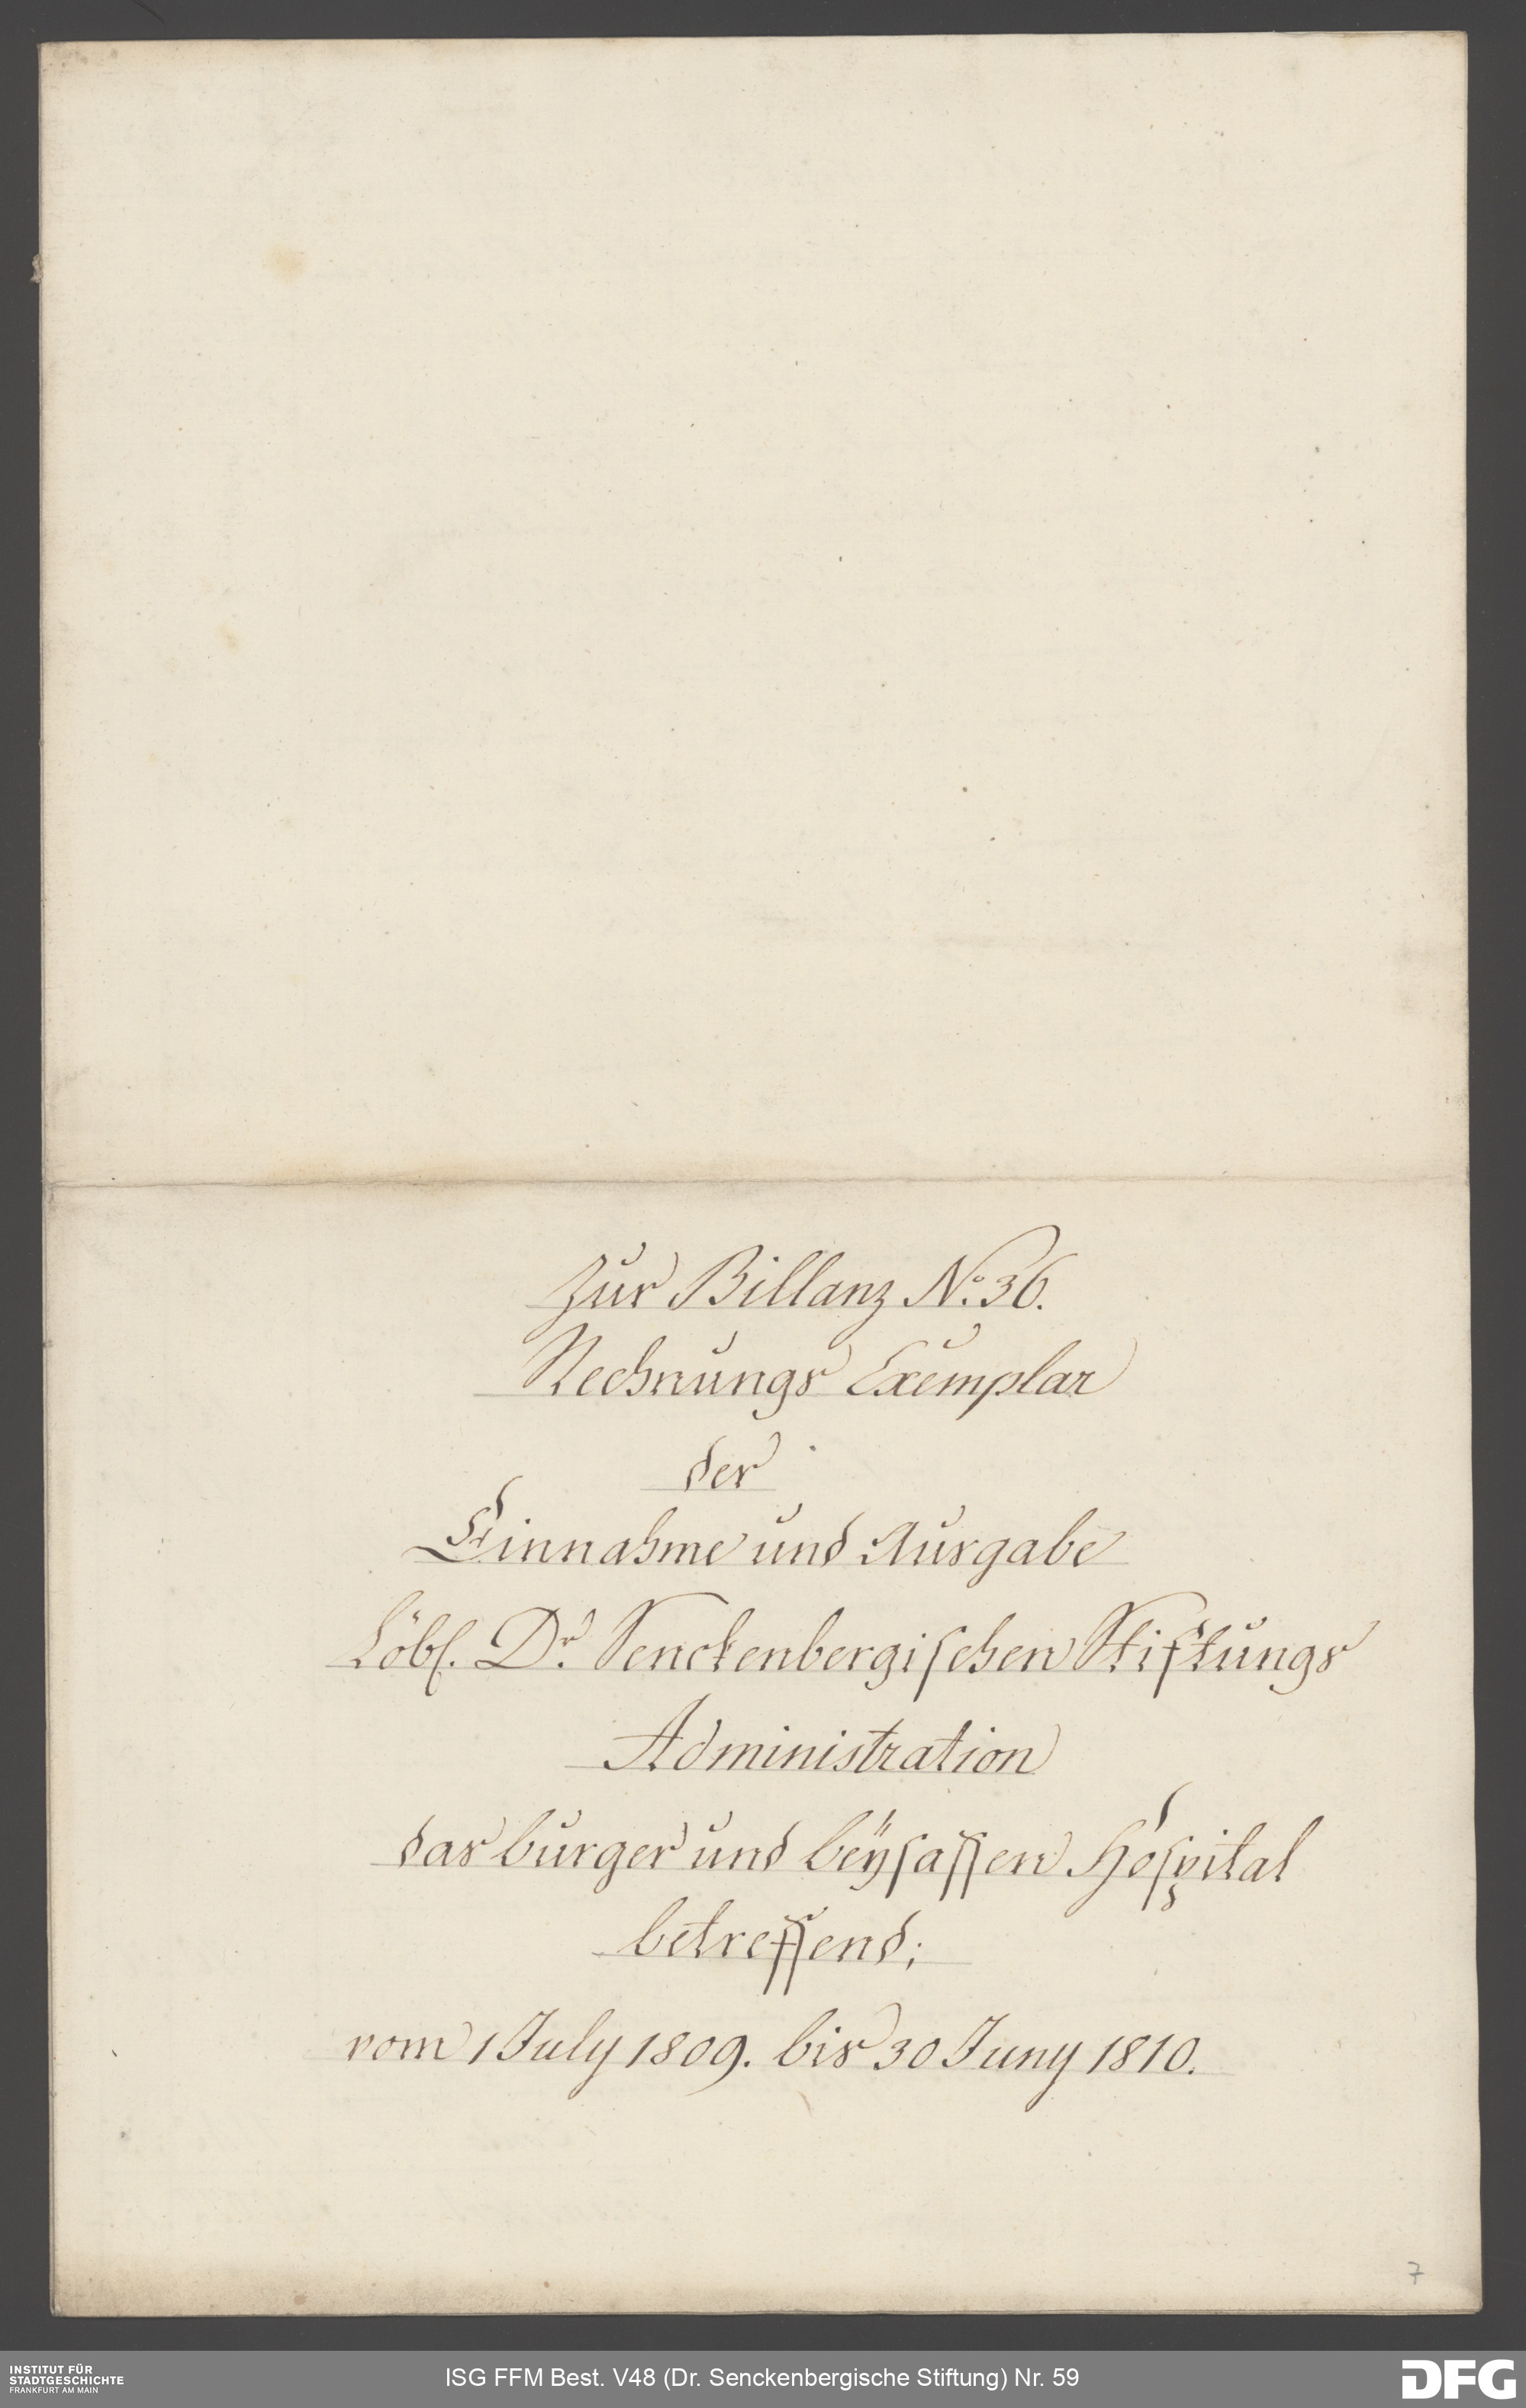 Zur Billanz No. 36.
Rechnungs Exemplar
der
Einnahme und Ausgabe
Löbl. Dr. Senckenbergischen Stiftungs
Administration
das burger und beÿsassen Hospital
betreffend;
vom 1 July 1809. bis 30 Juny 1810.
7
INSTITUT FÜR
STADTGESCHICHTE
FRANKFURT AM MAIN
ISG FFM Best. V48 (Dr. Senckenbergische Stiftung) Nr. 59
DFG